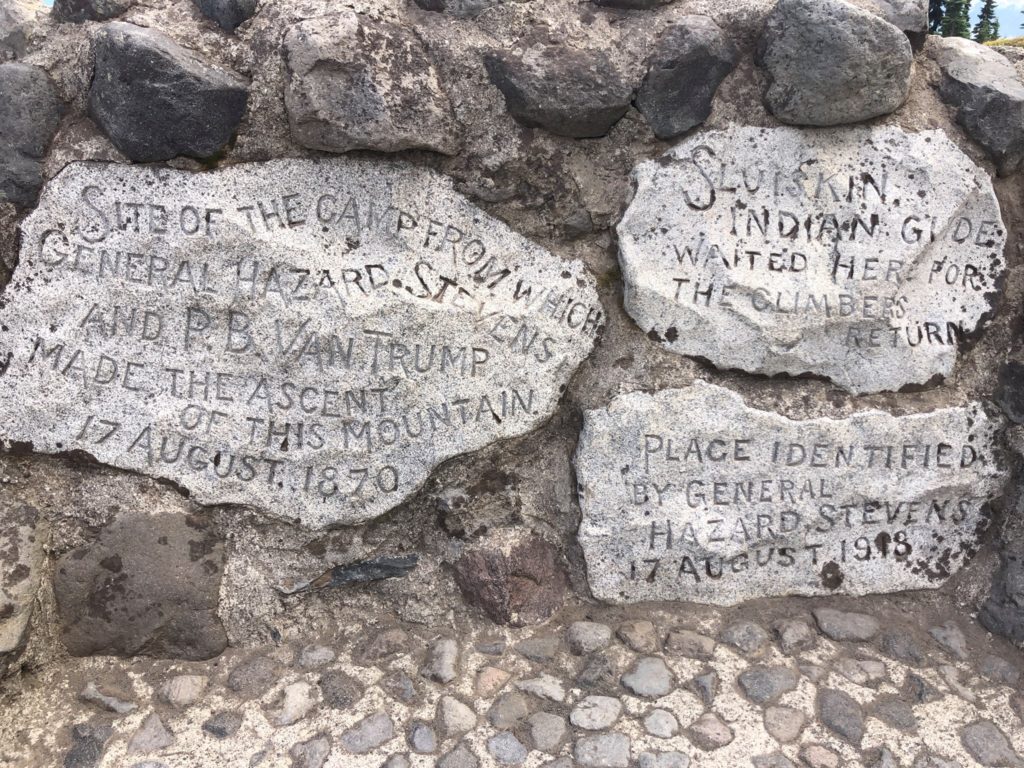 SITE OF THE CAMP FROM WHICH
GENERAL HAZARD. STEVENS
AND P. B. VAN. TRUMP
MADE THE ASCENT
OF THIS MOUNTAIN.
17 AUGUST. 1870
SLUISKIN.
INDIAN GUIDE
WAITED HERE FOR.
THE CLIMBERS
RETURN
PLACE IDENTIFIED.
BY GENERAL
HAZARD. STEVENS
17 AUGUST. 1918